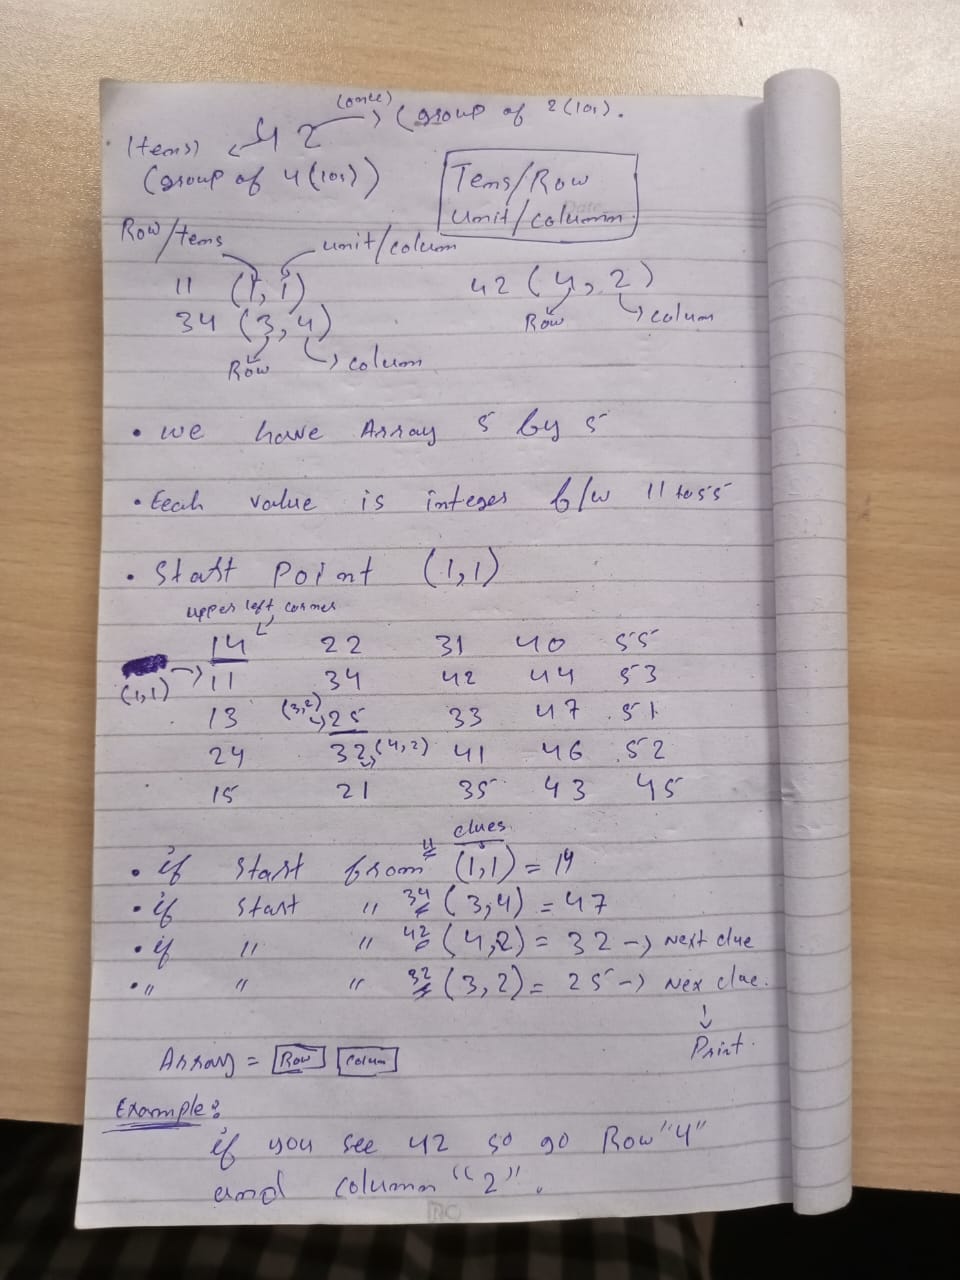 (once)
42 → (group of 2(10s).
(tens)
(group of 4(10s))
Tens/Row
Unit/column
Row/tens
unit/colum
11 (1,1)
42 (4,2)
34 (3,4)
Row
colum
Row
column
• we have Array 5 by 5
• Eeach value is integer b/w 11 to 55
• Start Point (1,1)
upper left corner
14 22 31 40 55
(1,1) → 11 34 42 44 53
13 (3,2) 25 33 47 51
24 32 (4,2) 41 46 52
15 21 35 43 45
clues
• if start from 11 (1,1) = 14
• if start " 34 (3,4) = 47
• if " " 42 (4,2) = 32 → next clue
• " " " 32 (3,2) = 25 → nex clue.
↓
Print.
Array = Row Colum
Example:
if you see 42 so go Row "4"
and column "2".